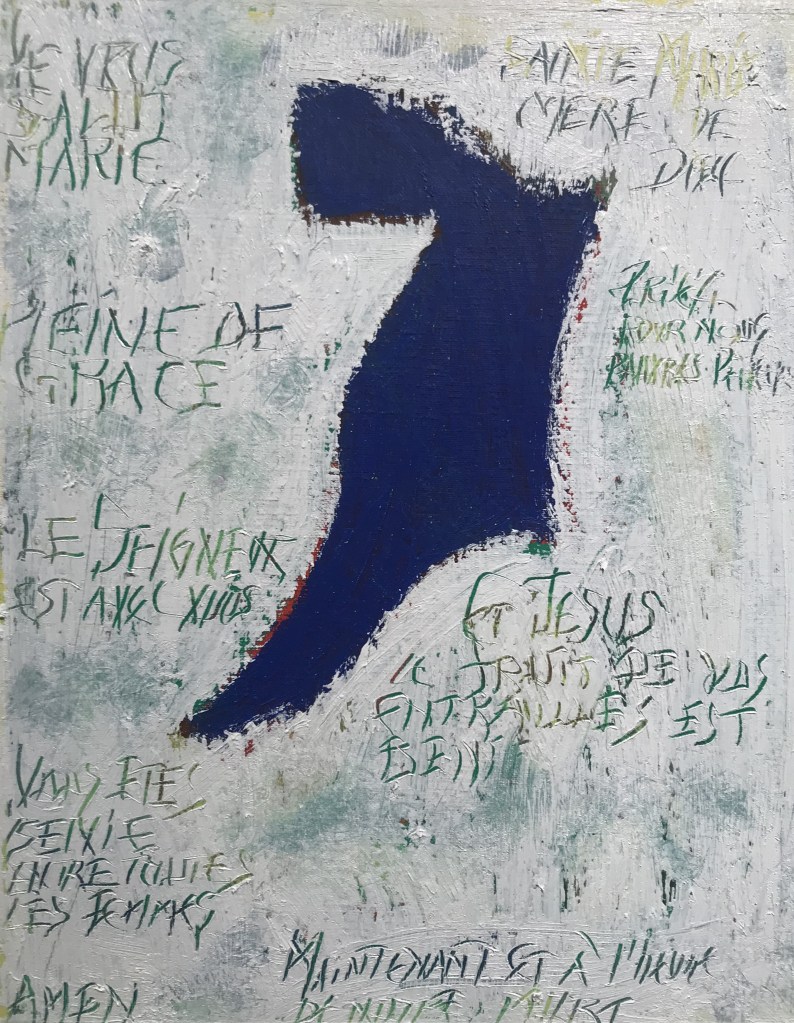 JE VOUS
SALUT
MARIE
DE
GRACE
LE SEIGNEUR
EST AVEC VOUS
VOUS ETES
BENIE
ENTRE TOUTES
LES FEMMES
ET JESUS
LE FRUIT DE VOS
ENTRAILLES EST
BENI
SAINTE MARIE
MERE DE
DIEU
PRIEZ
POUR NOUS
PAUVRES
MAINTENANT ET À L'HEURE
DE NOTRE MORT
AMEN